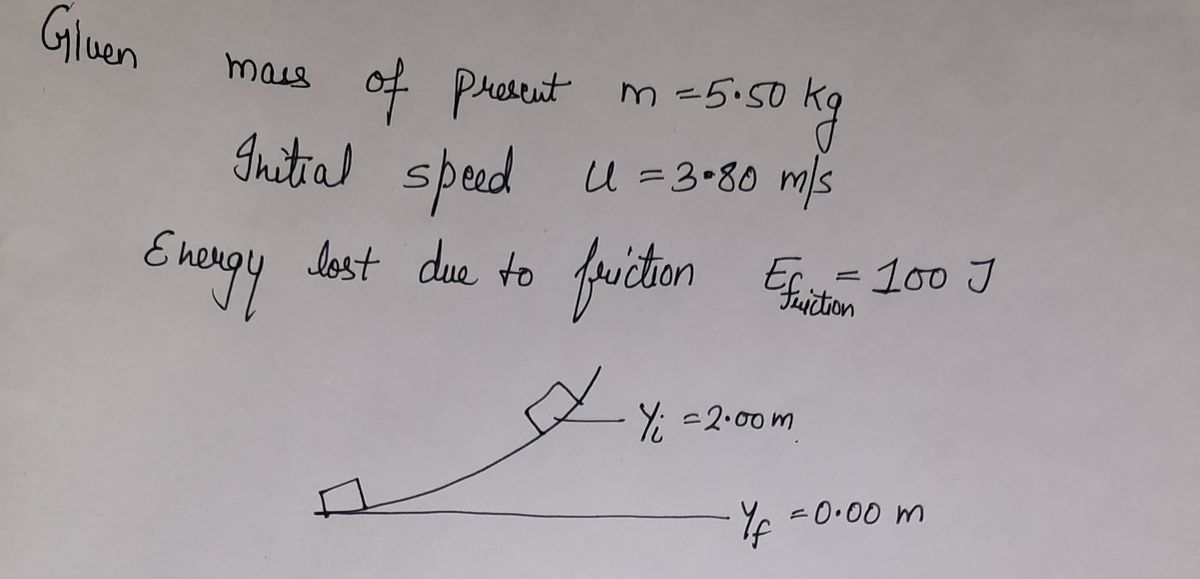 Given mass of present m = 5.50 kg
Initial speed u = 3.80 m/s
Energy lost due to friction E friction = 100 J
Yi = 2.00 m
Yf = 0.00 m